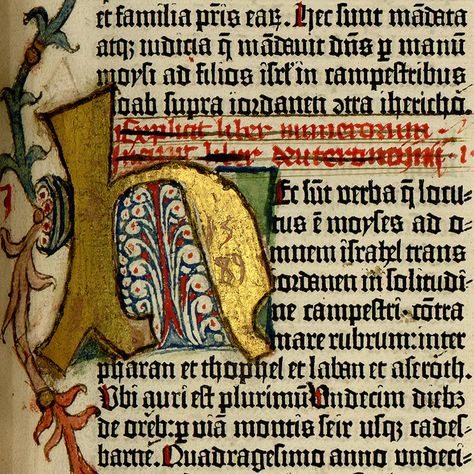 et familia pr̄is earū. Hec sunt mādata
atq; iudicia q̄ mādauit dn̄s p̱ manū
moysi ad filios isrl̄ in campestribus
moab supra iordanen ↄtra iherichō.
Explicit liber numerorum.
Incipit liber deuteronomij.
h
Ec sūt verba q̄ locu-
tus ē moyses ad o-
mnem israhel trans
iordanen in solitudi-
ne campestri. cōtra
mare rubrum: inter
pharan et thophel et laban et aseroth.
Ubi auri est plurimū. Undecim diebȝ
de oreb: p̱ viam montis seir usq; cades-
barne. Quadragesimo anno undeci-